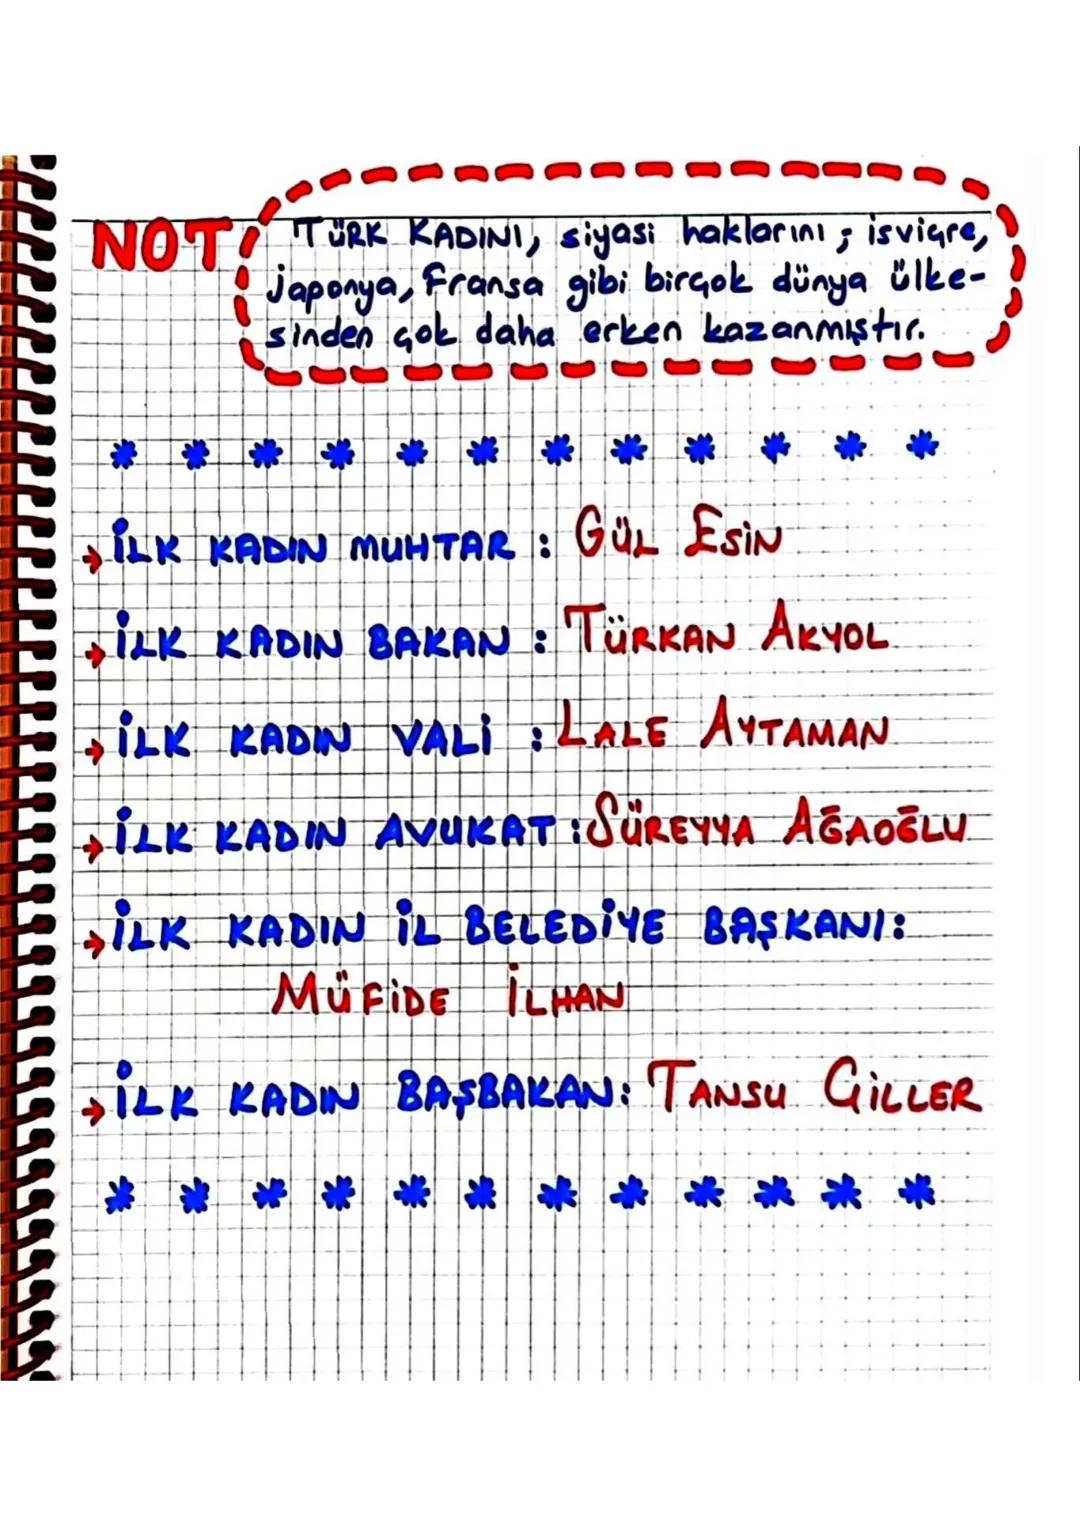 NOT
TÜRK KADINI, siyasi haklarını; isviçre,
japonya, Fransa gibi birçok dünya ülke-
sinden çok daha erken kazanmıştır.
→ İLK KADIN MUHTAR : GÜL ESİN
→ İLK KADIN BAKAN : TÜRKAN AKYOL
→ İLK KADIN VALİ : LALE AYTAMAN
→ İLK KADIN AVUKAT : SÜREYYA AĞAOĞLU
→ İLK KADIN İL BELEDİYE BAŞKANI:
MÜFİDE İLHAN
→ İLK KADIN BAŞBAKAN: TANSU ÇİLLER